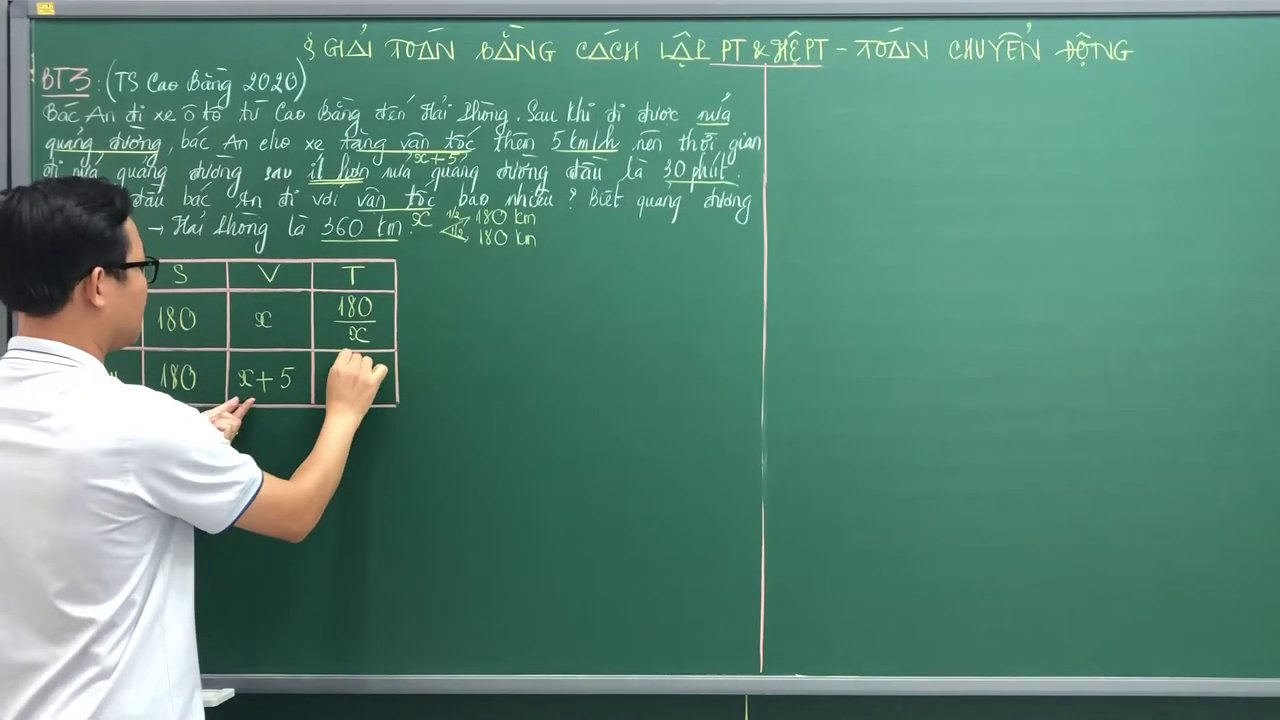 § GIẢI TOÁN BẰNG CÁCH LẬP PT & HỆ PT - TOÁN CHUYỂN ĐỘNG
BT3: (TS Cao Bằng 2020)
Bác An đi xe ô tô từ Cao Bằng đến Hải Phòng. Sau khi đi được nửa
quảng đường, bác An cho xe tăng vận tốc thêm 5 km/h nên thời gian
x+5
đi nửa quảng đường sau ít hơn nửa quảng đường đầu là 30 phút.
đầu bác An đi với vận tốc bao nhiêu? Biết quảng đường
→ Hải Phòng là 360 km. x 1/2 180 km
1/2 180 km
S V T
180 x 180/x
180 x+5